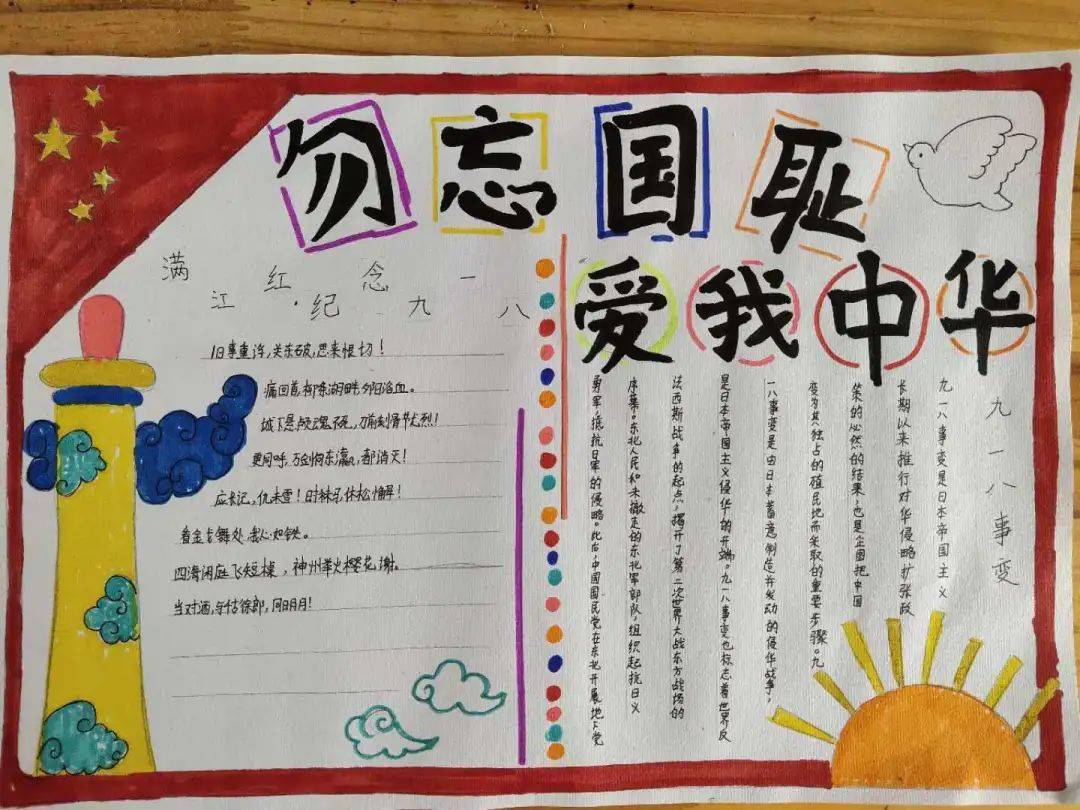 勿忘国耻
爱我中华
满江红·纪念九一八
旧事重许,关东破,思来恨切!
痛回首,柳条湖畔,夕阳浴血。
城下是 魂 , 刻骨节犹烈!
更同呼,万剑恂东瀛,都消灭!
应长记,仇未雪!时 马,休松懈!
看金戈舞处,我心如铁。
四海闲庭飞短 ,神州举火樱花谢。
当对酒,与估徐郎,同日月!
九一八事变
九一八事变是日本帝国主义
长期以来推行对华侵略扩张政
策的必然的结果,也是企图把中国
变为其独占的殖民地而采取的重要步骤。九
一八事变是由日本蓄意制造并发动的侵华战争,
是日本帝国主义侵华的开端。九一八事变也标志着世界反
法西斯战争的起点,揭开了第二次世界大战东方战场的
序幕。东北人民和未撤走的东北军部队,组织起抗日义
勇军,抵抗日军的侵略。此后,中国国民党在东北开展地下党